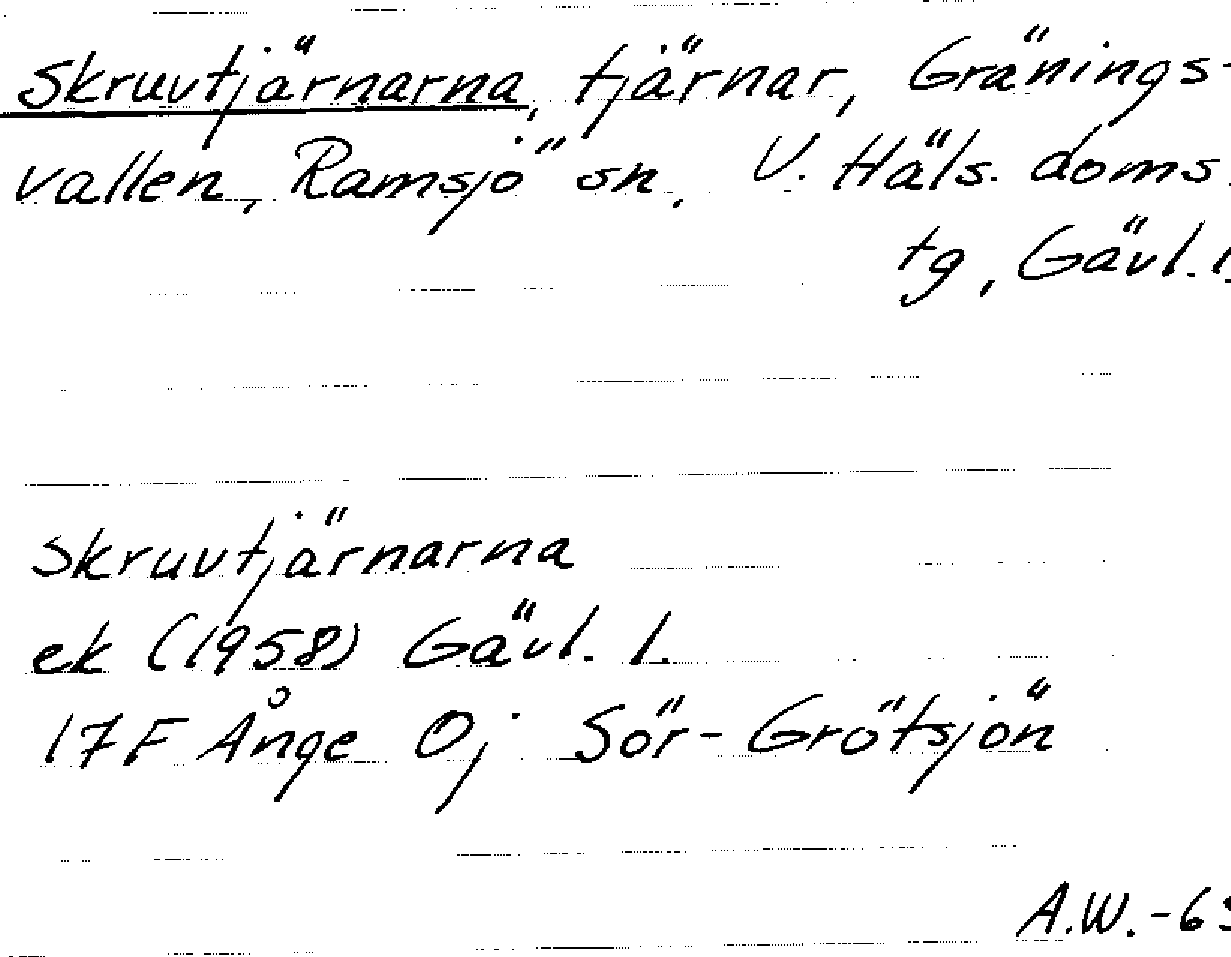 Skruvtjärnarna, tjärnar, Gränings-
vallen, Ramsjö sn. V. Häls. doms.
tg, Gävl. l.
Skruvtjärnarna
ek (1958) Gävl. l.
17F Ånge 0j Sör-Grötsjön
A.W.